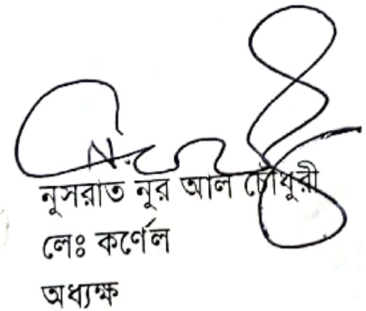 নুসরাত নূর আল চৌধুরী
লেঃ কর্ণেল
অধ্যক্ষ